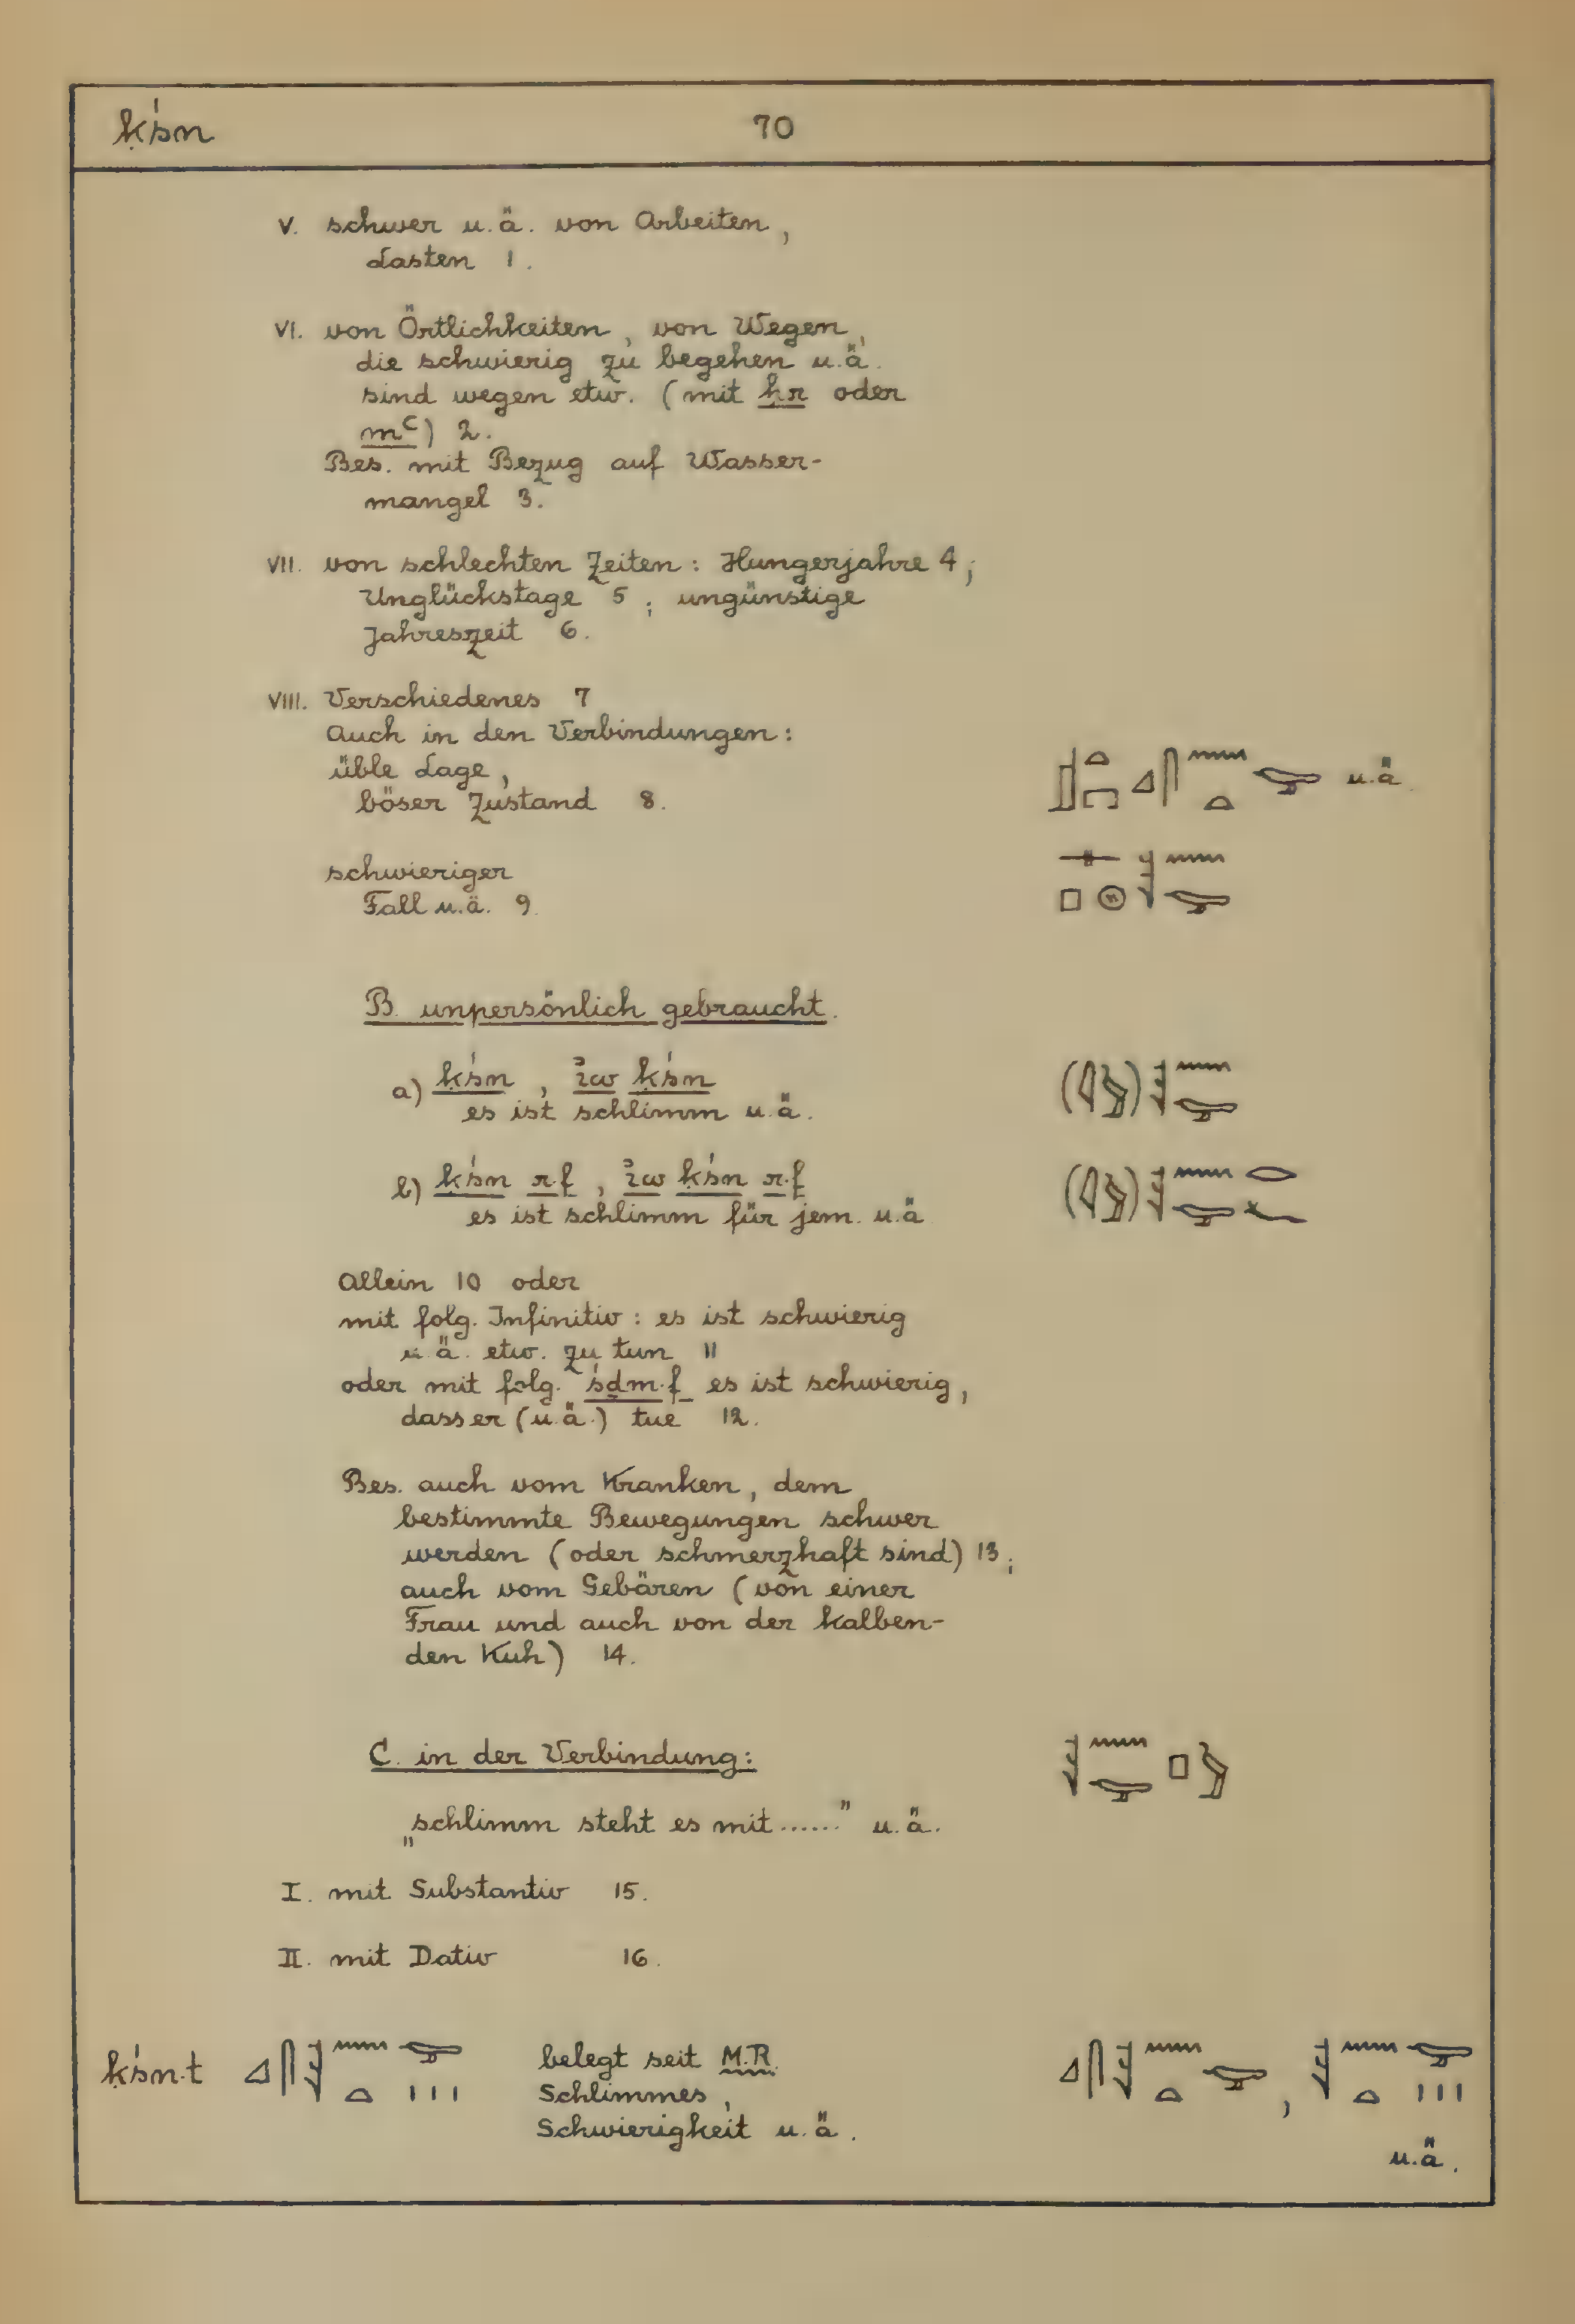 ḳśn 70
V. schwer u.ä. von Arbeiten,
Lasten 1.
VI. von Örtlichkeiten, von Wegen,
die schwierig zu begehen u.ä.
sind wegen etw. (mit ḥr oder
mꜥ) 2.
Bes. mit Bezug auf Wasser-
mangel 3.
VII. von schlechten Zeiten: Hungerjahre 4;
Unglückstage 5; ungünstige
Jahreszeit 6.
VIII. Verschiedenes 7
Auch in den Verbindungen:
üble Lage,
böser Zustand 8. u.ä.
schwieriger
Fall u.ä. 9.
B. unpersönlich gebraucht.
a) ḳśn, ꞽw ḳśn
es ist schlimm u.ä.
b) ḳśn r.f, ꞽw ḳśn r.f
es ist schlimm für jem. u.ä
Allein 10 oder
mit folg. Infinitiv: es ist schwierig
u.ä. etw. zu tun 11
oder mit folg. śḏm.f es ist schwierig,
dass er (u.ä.) tue 12.
Bes. auch vom Kranken, dem
bestimmte Bewegungen schwer
werden (oder schmerzhaft sind) 13;
auch vom Gebären (von einer
Frau und auch von der kalben-
den Kuh) 14.
C. in der Verbindung:
„schlimm steht es mit......" u.ä.
I. mit Substantiv 15.
II. mit Dativ 16.
ḳśn.t belegt seit M.R.
Schlimmes,
Schwierigkeit u.ä.
u.ä.